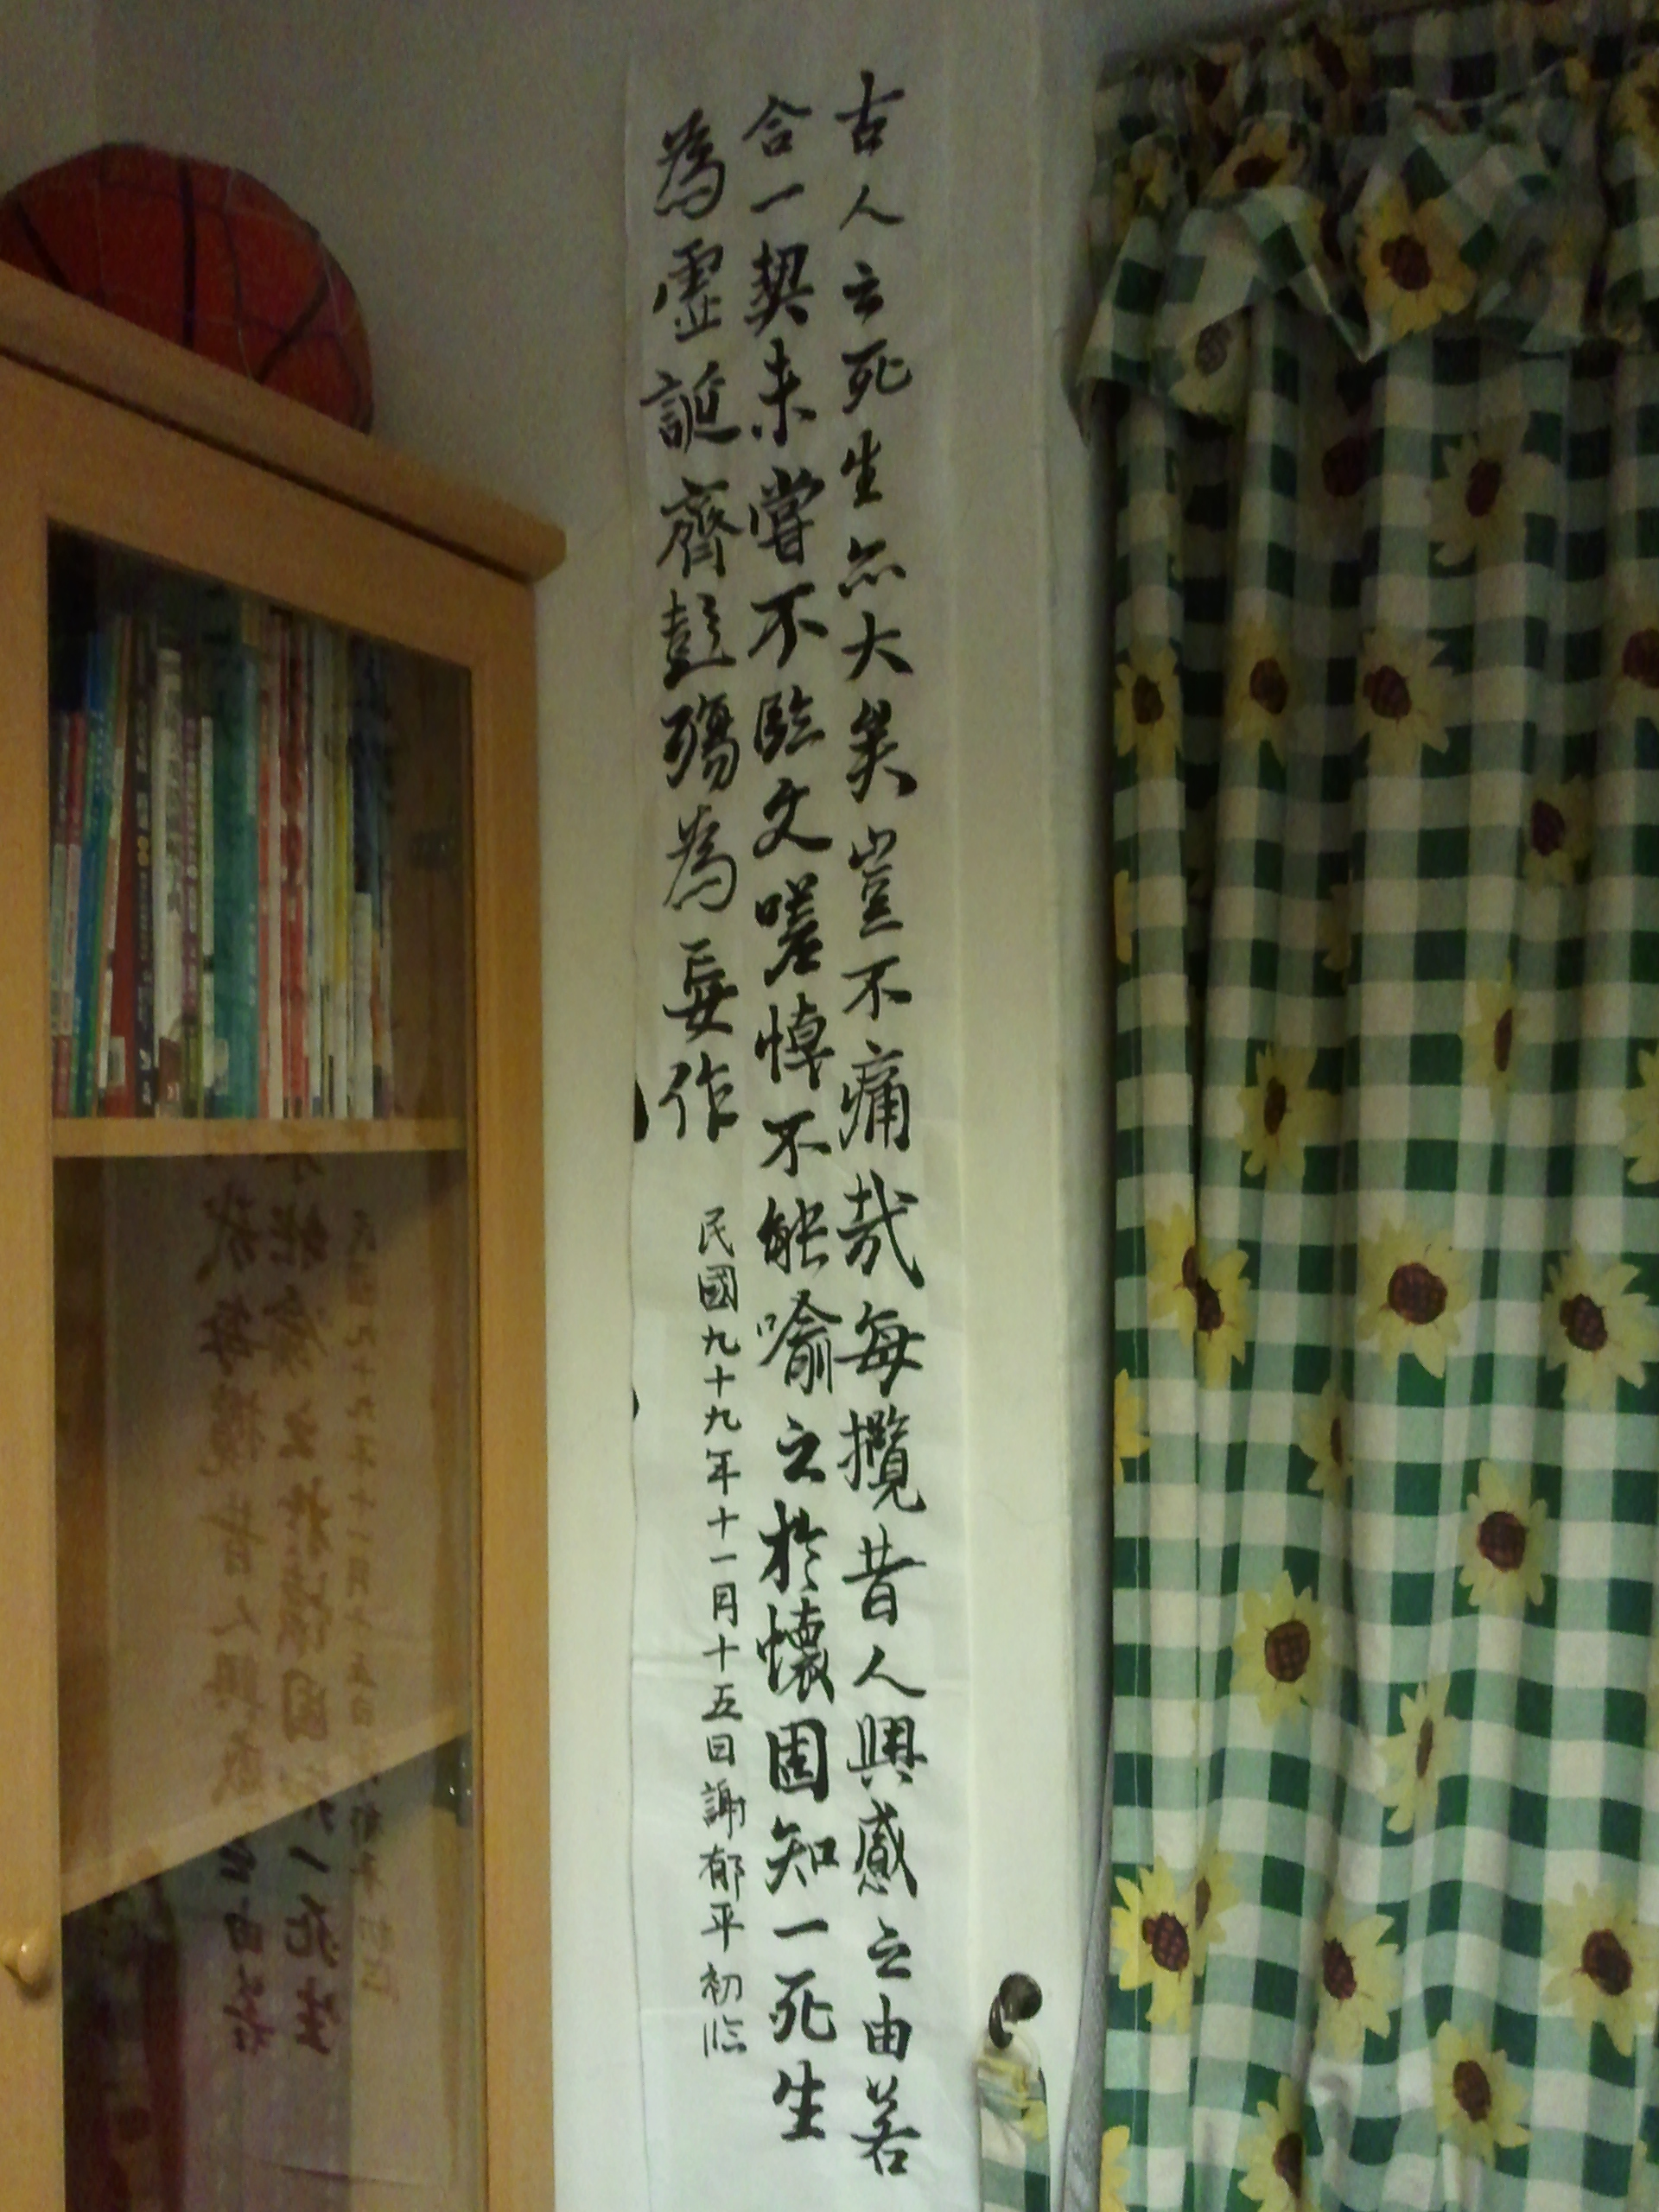 古人云死生亦大矣豈不痛哉每攬昔人興感之由若
合一契未嘗不臨文嗟悼不能喻之於懷固知一死生
為虛誕齊彭殤為妄作
民國九十九年十一月十五日謝郁平初臨